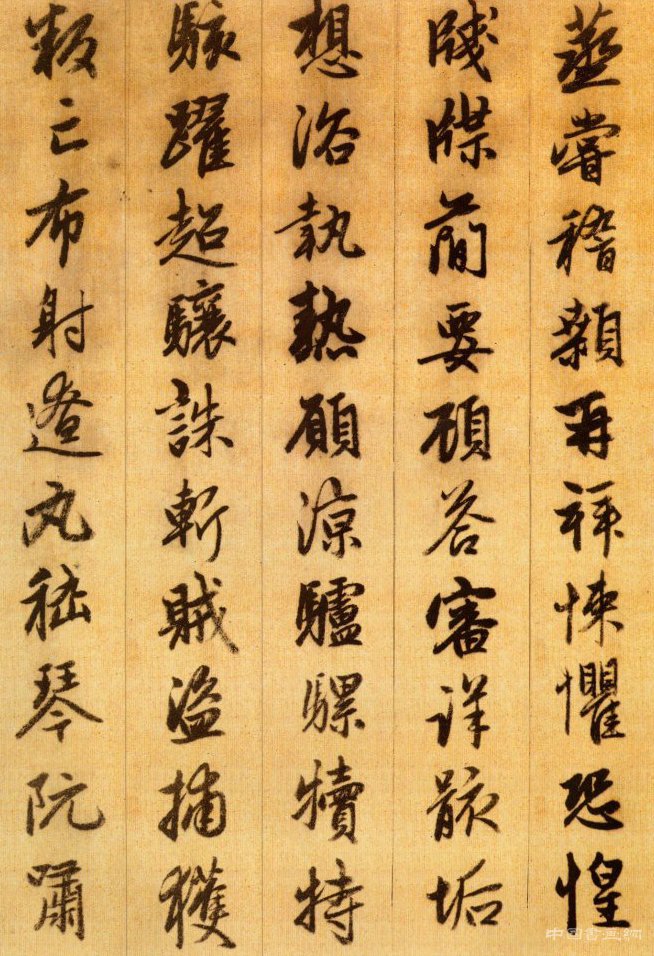 蒸嘗稽顙再拜悚懼恐惶
牋牒簡要顧答審詳骸垢
想浴執熱願涼驢騾犢特
駭躍超驤誅斬賊盜捕獲
叛亡布射遼丸嵇琴阮嘯
中國書畫網